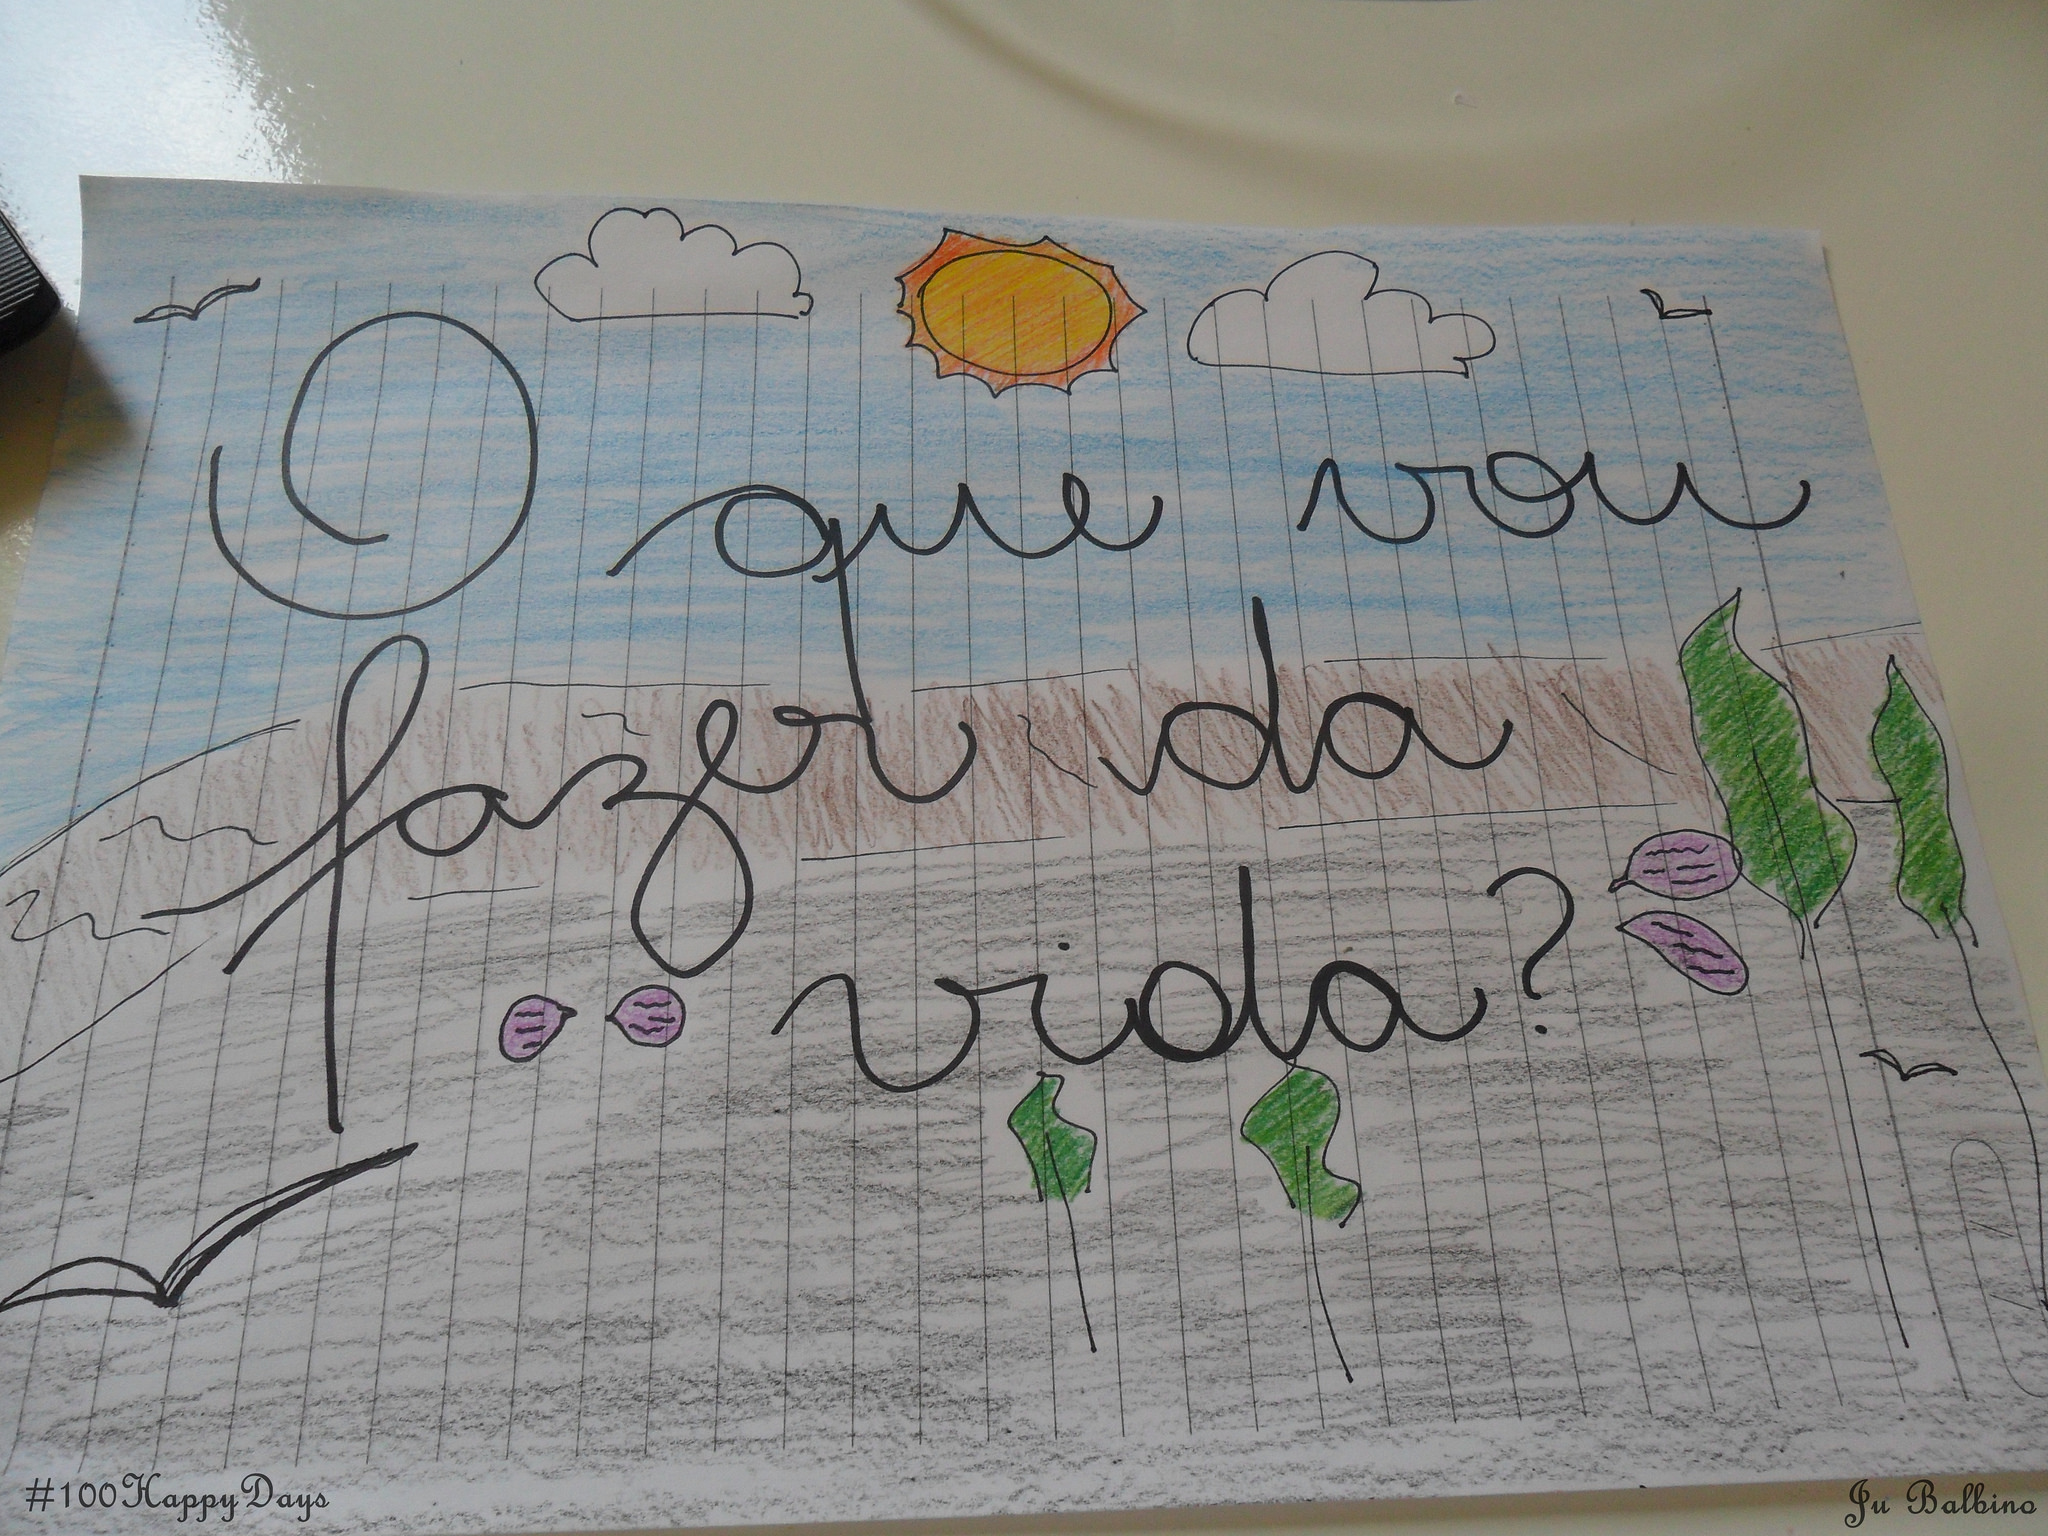 O que vou
fazer da
vida?
#100HappyDays
Ju Balbino